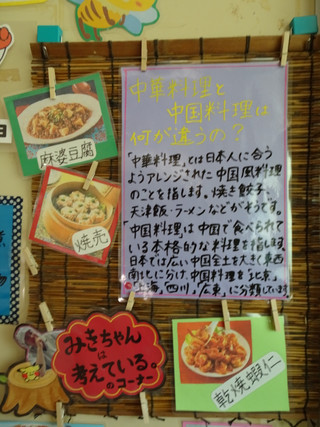 中華料理と
中国料理は
何が違うの？
「中華料理」とは日本人に合う
ようアレンジされた中国風料理
のことを指します。焼き餃子、
天津飯・ラーメンなどがそうです。
「中国料理は中国で食べられて
いる本格的な料理を指します。
日本では広い中国全土を大きく東西
南北に分け、中国料理を「北京」
「上海」「四川」「広東」に分類しています。
麻婆豆腐
焼売
みきちゃん
は
考えている。
のコーナー
乾焼蝦仁
物